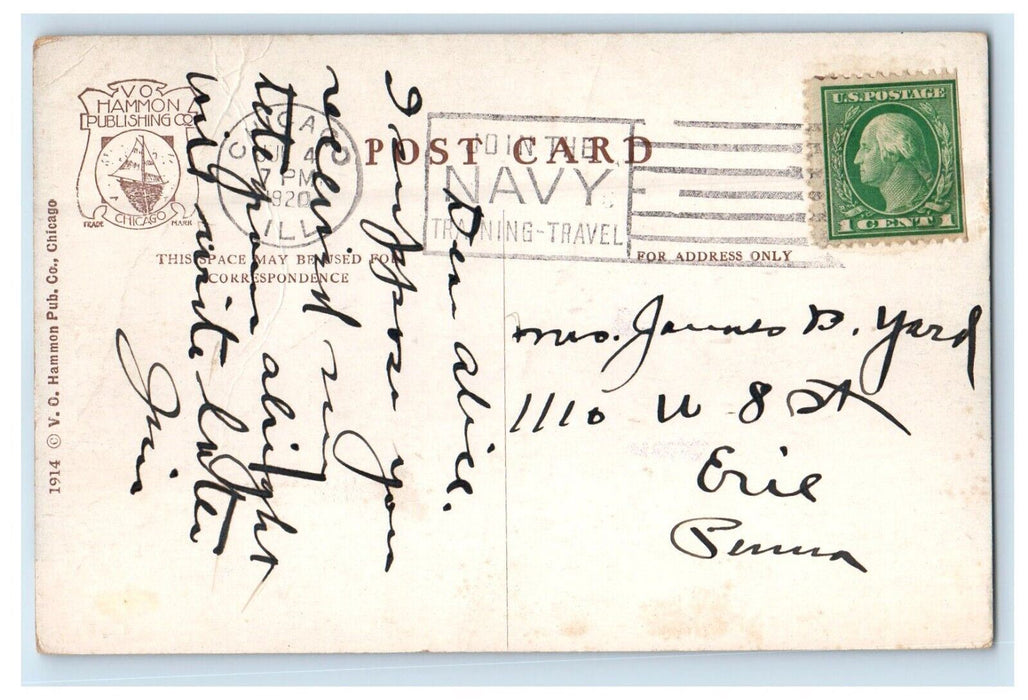 V. O.
HAMMON
PUBLISHING CO
CHICAGO
TRADE MARK
CHICAGO
4
7 PM
1920
ILL
JOIN THE
NAVY
TRAINING-TRAVEL
U.S. POSTAGE
1 CENT 1
POST CARD
THIS SPACE MAY BE USED FOR
CORRESPONDENCE
FOR ADDRESS ONLY
1914 © V. O. Hammon Pub. Co., Chicago
Dear Alice.
I suppose you
received my
alright
will write later
Mrs. James B. Yard
1110 W 8 St
Erie
Penna